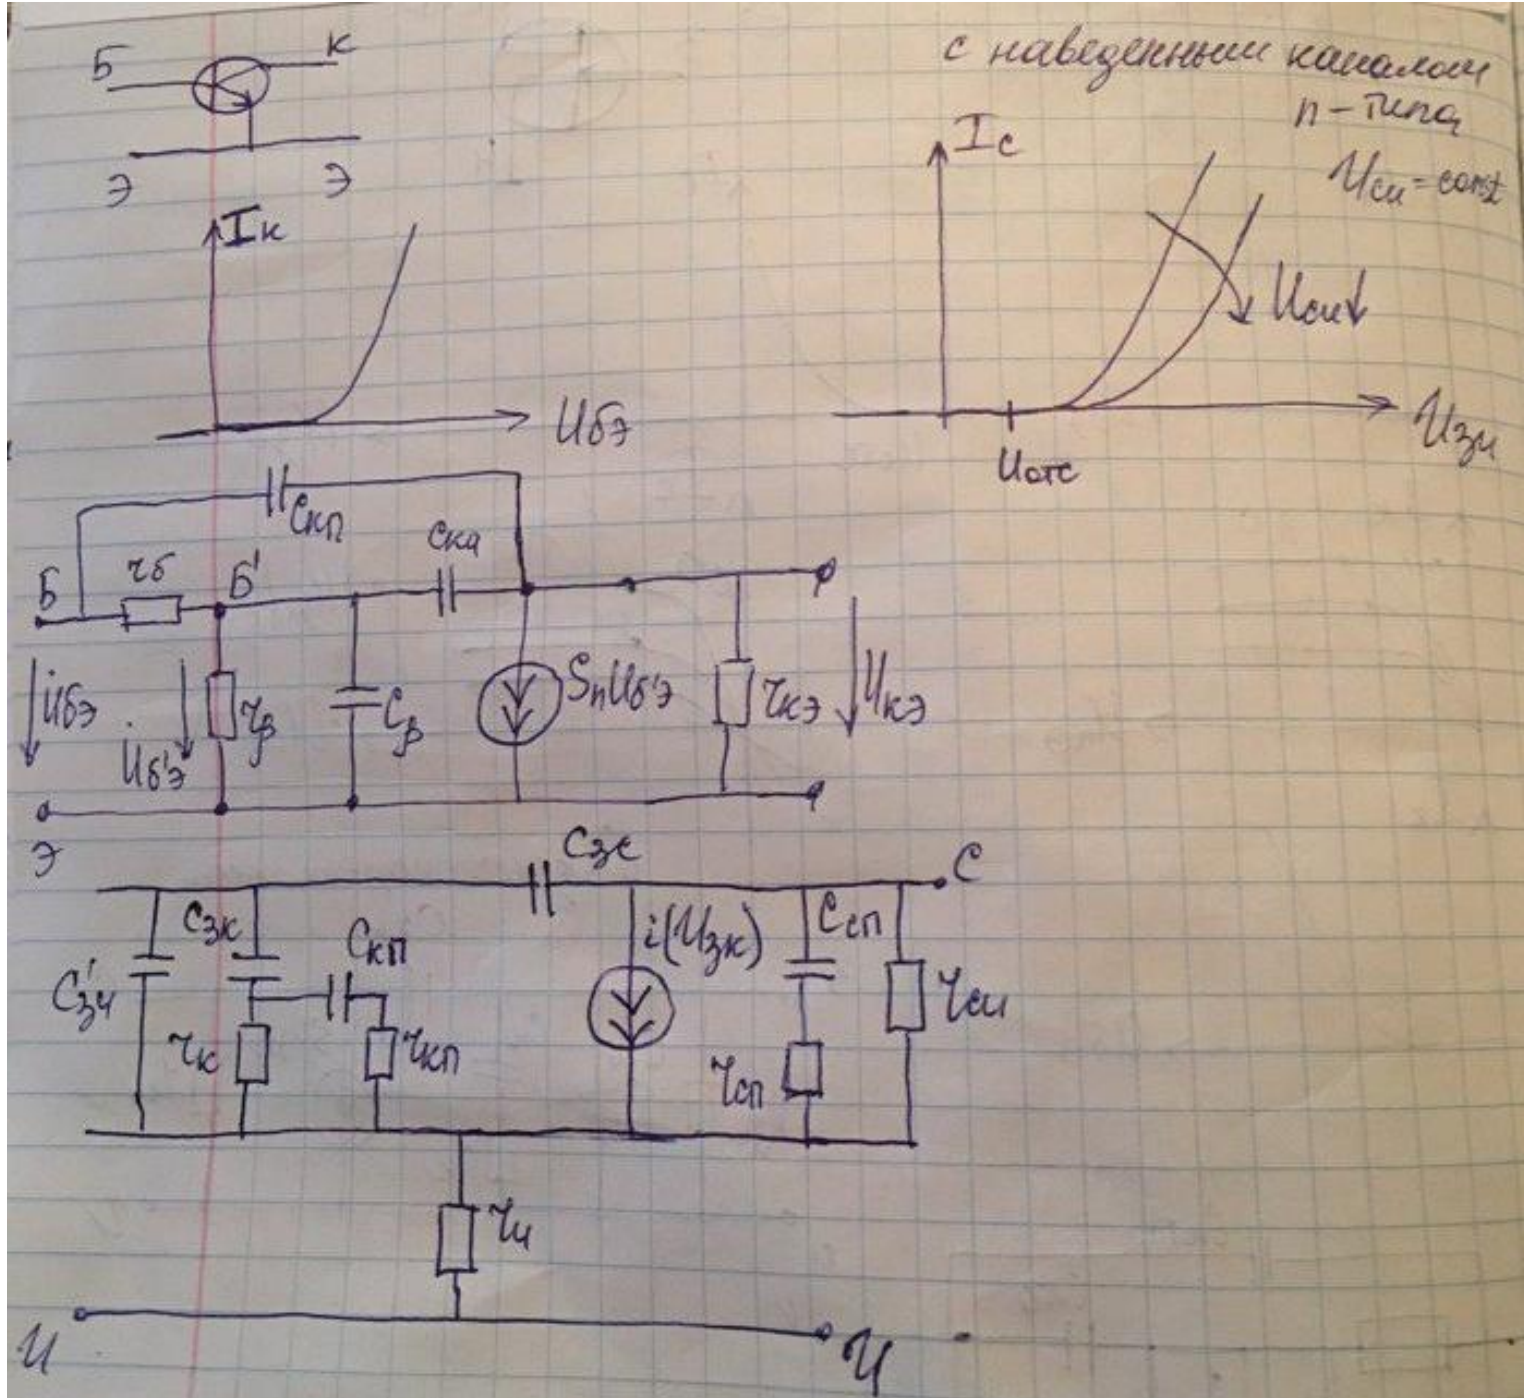 Б
К
Э
Э
Iк
Uбэ
с наведенным каналом
n-типа
Uси=const
Iс
Uси↓
Uзи
Uотс
Cкп
Cка
Б
rб
Б'
U̇бэ
U̇б'э
rβ
Cβ
SпUб'э
rкэ
Uкэ
Э
Cзс
С
C'зи
Cзк
Cкп
rк
rкп
i(Uзк)
Cсп
rсп
rси
rи
И
И